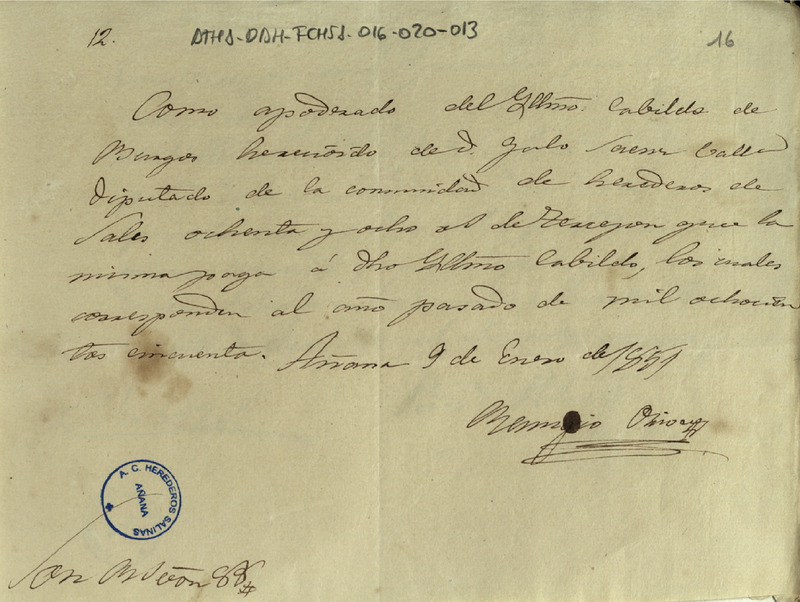 12.
ATHA-DAH-FCHSA-016-020-013
16
Como apoderado del Yllmo. Cabildo de
Burgos he recivido de D. Saenz
Diputado de la comunidad de herederos de
Sales ochenta y ocho de que la
misma paga á dho Yllmo Cabildo, los cuales
corresponden al año pasado de mil ochocien
tos cincuenta. Añana 9 de Enero de 1851
Remigio
A. C. HEREDEROS SALINAS
AÑANA
Son 88